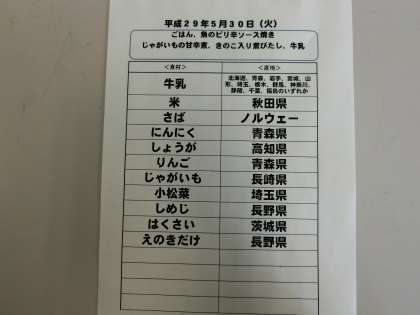 平成29年5月30日（火）
ごはん、魚のピリ辛ソース焼き
じゃがいもの甘辛煮、きのこ入り煮びたし、牛乳
＜食材＞ ＜産地＞
牛乳 北海道、青森、岩手、宮城、山形、埼玉、栃木、群馬、神奈川、静岡、千葉、福島のいずれか
米 秋田県
さば ノルウェー
にんにく 青森県
しょうが 高知県
りんご 青森県
じゃがいも 長崎県
小松菜 埼玉県
しめじ 長野県
はくさい 茨城県
えのきだけ 長野県